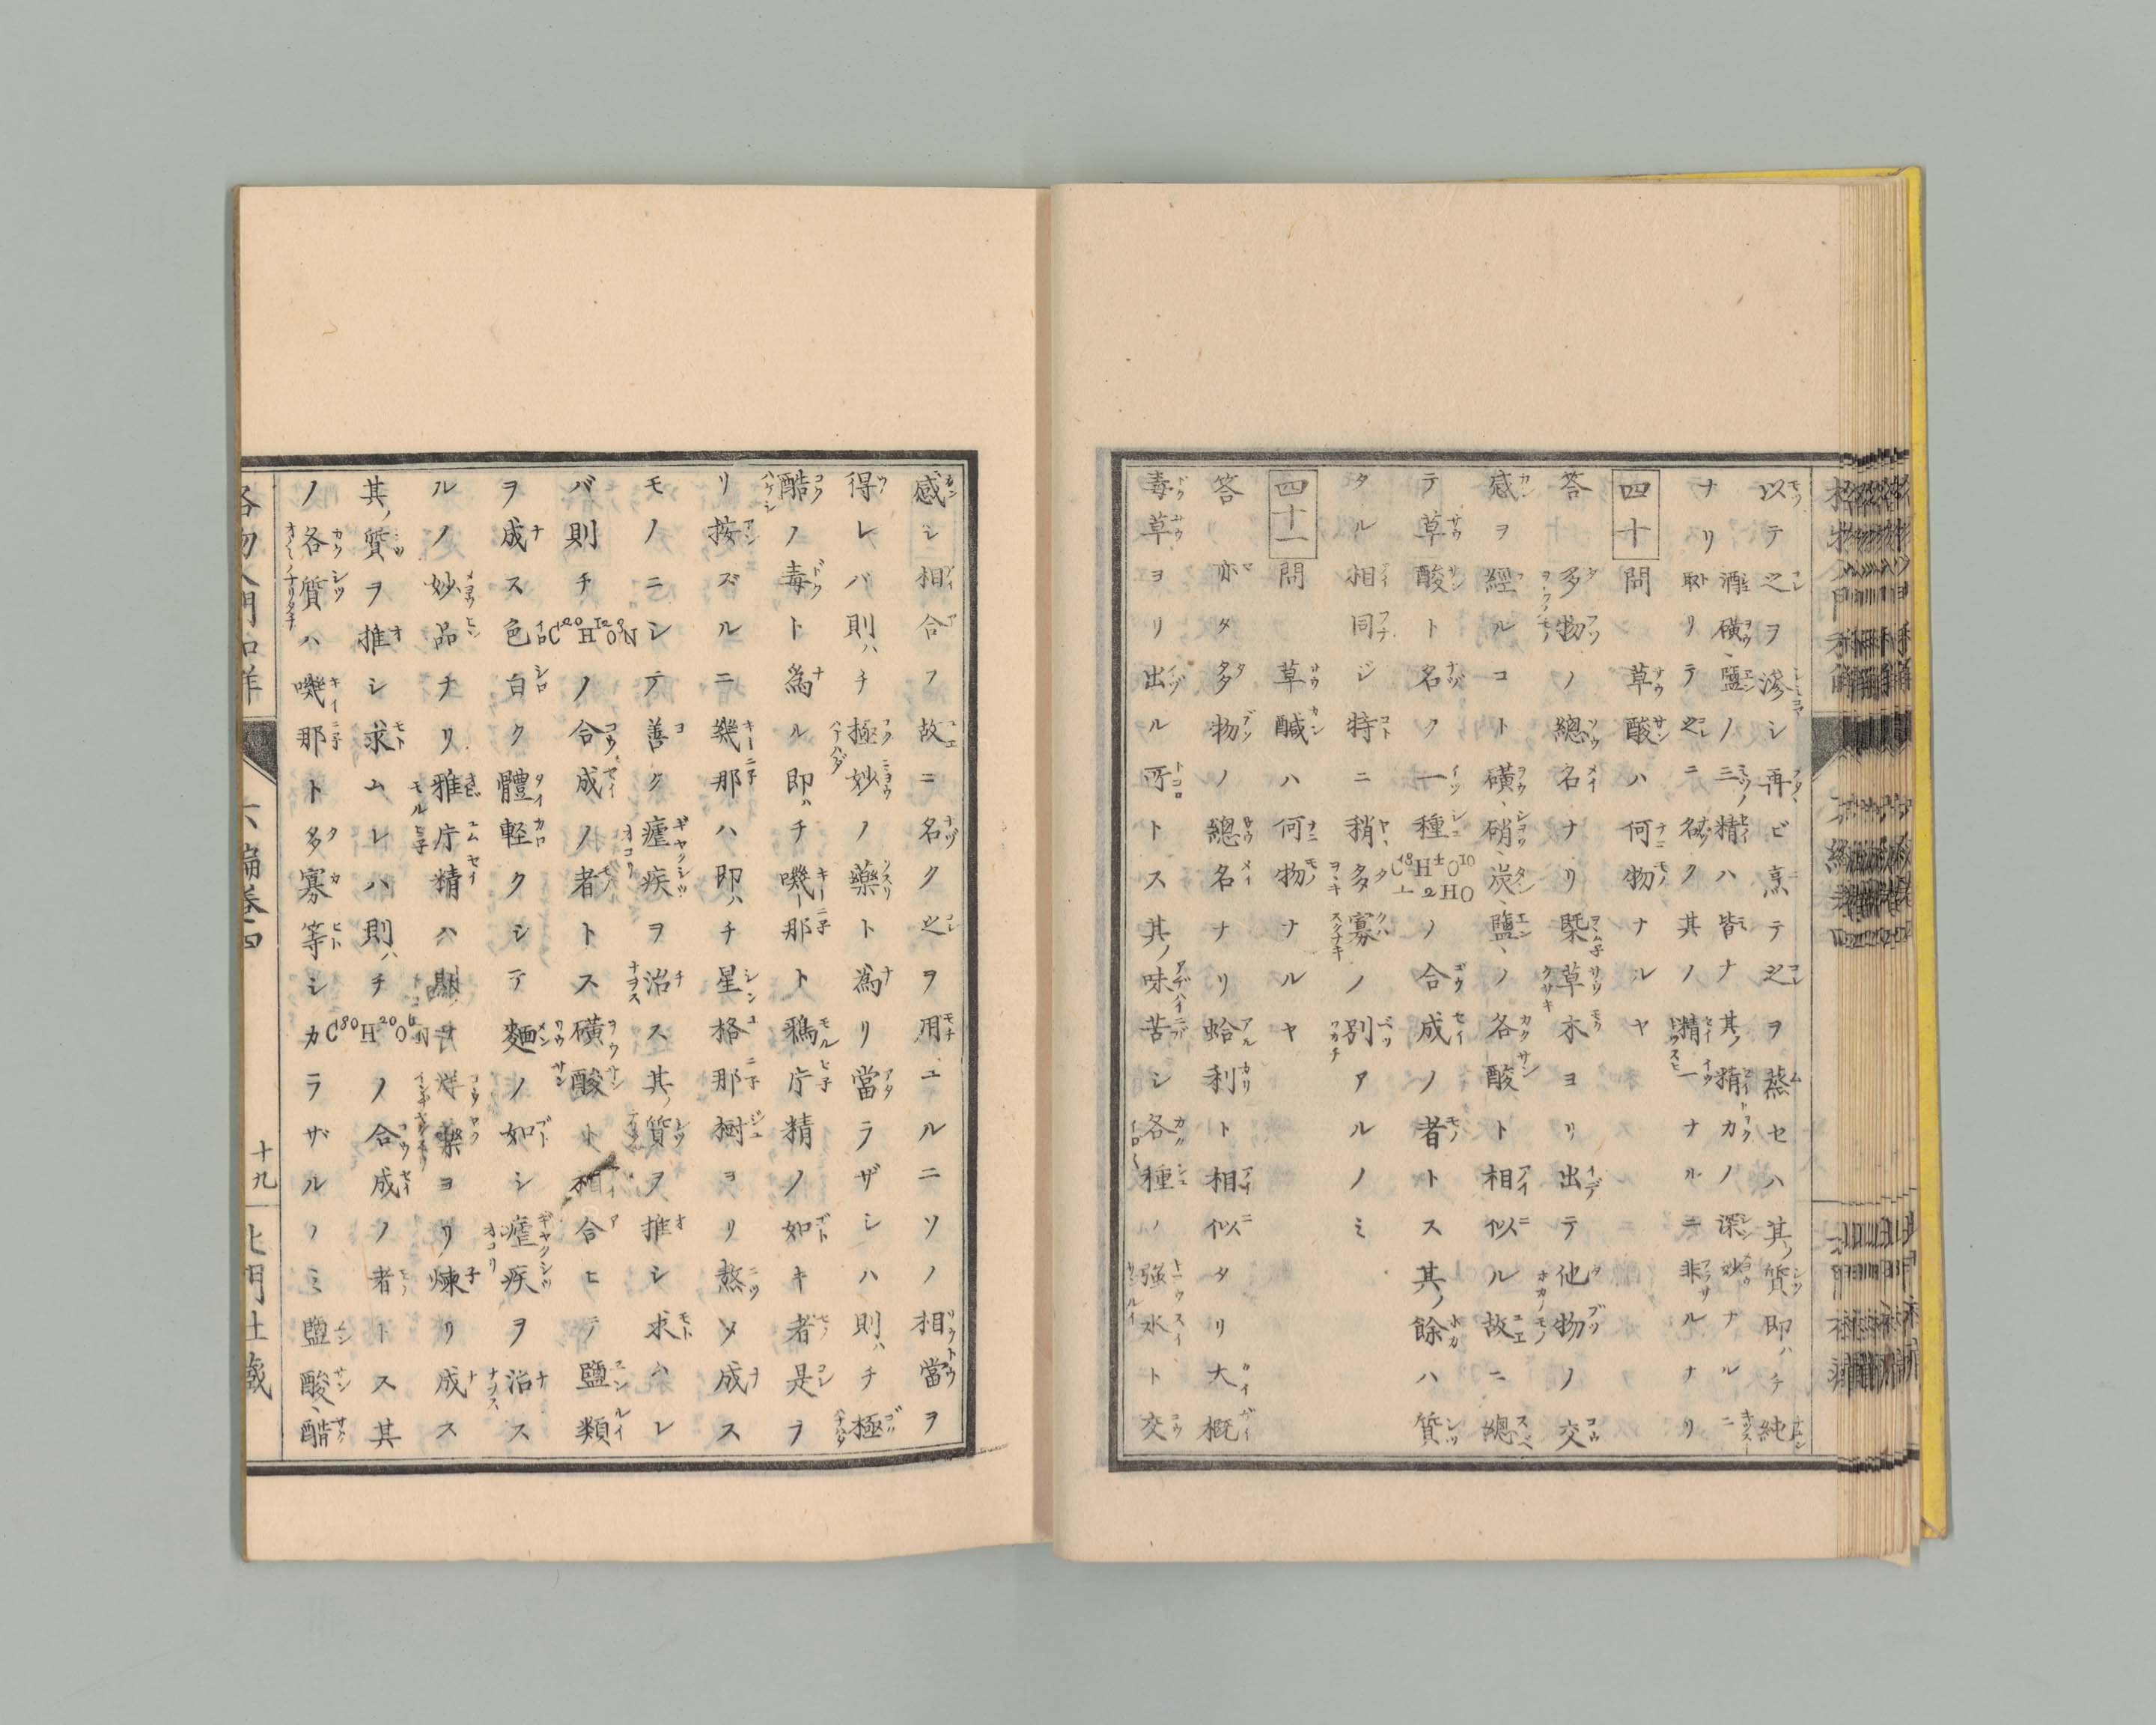 以テ之ヲ滲シ再ビ烹テ之ヲ蒸セハ其ノ質即ハチ純
ナリ酒礦、鹽ノ三精ハ皆ナ其ノ精カノ深妙ナルニ
取リテ之ニ名ク其ノ精一ナルニ非ルナリ
四十 問 草酸ハ何物ナルヤ
答 多物ノ總名ナリ槩草木ヨリ出テ他物ノ交
感ヲ經ルコト磺、硝、炭、鹽、ノ各酸ト相似ル故ニ總
テ草酸ト名ク一種C¹⁸H⁴O¹⁰ 2HOノ合成ノ者トス其ノ餘ハ質
タル相同ジ特ニ稍多寡ノ別アルノミ
四十一 問 草鹹ハ何物ナルヤ
答 亦タ多物ノ總名ナリ蛤利ト相似タリ大概
毒草ヨリ出ル所トス其ノ味苦シ各種ノ強水ト交
感シ相合フ故ニ名ク之ヲ用ユルニソノ相當ヲ
得レバ則ハチ極妙ノ藥ト為リ當ラザシハ則ハチ極
酷ノ毒ト為ル即ハチ嘰那ト鴉片精ノ如キ者是ヲ
リ按ズルニ幾那ハ即ハチ星格那樹ヨリ熬ソ成ス
モノニシテ善ク瘧疾ヲ治ス其ノ質ヲ推シ求ムレ
バ則チC²⁰H¹²O²Nノ合成ノ者トス磺酸ト相合ヒテ鹽類
ヲ成ス色白ク體軽クシテ麵ノ如シ瘧疾ヲ治ス
ルノ妙品チリ雅片精ハ洋藥ヨリ煉リ成ス
其ノ質ヲ推シ求ムレハ則ハチノ合成ノ者トス其
ノ各質ハ嘰那ト多寡等シカラザルノミ鹽酸、醋
六編巻四
十九
北門社藏